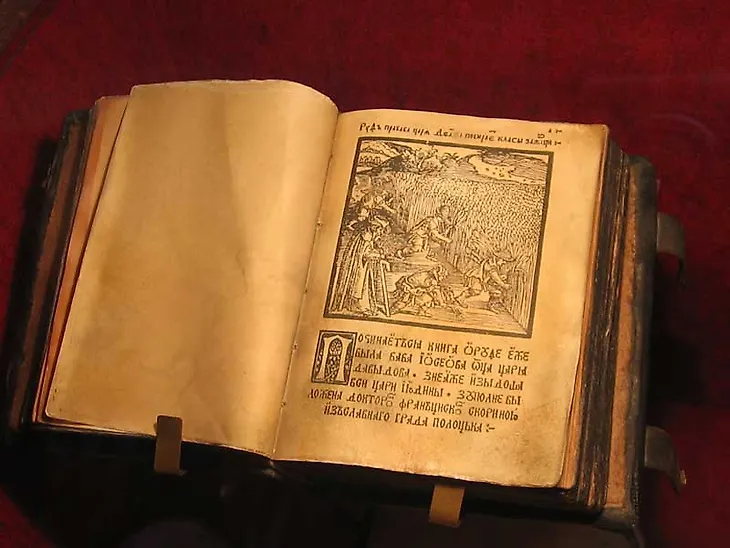 Руѳь праба царя Дав҃ыда
Починаетъсѧ книга ѡ҆руѳе ё҆же
была баба І҆ѡ҃сеѡва ѿца царѧ
давыдова · знеѧ҆же и҆зыдоша
вси цари и҆ю҃дины · зуполне вы
ложена доктор҃о франъциск҃о скориною
и҆зъславнаго града полоцька :~